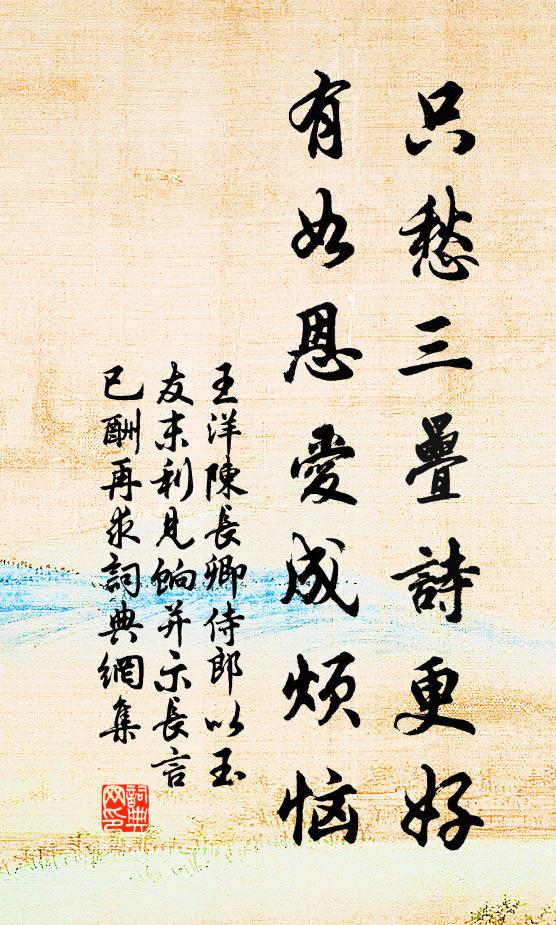 只愁三疊詩更好
有如恩愛成煩惱
王洋陳長卿侍郎以玉
友末利見餉并示長言
已酬再求詞典網集
詞典
网印